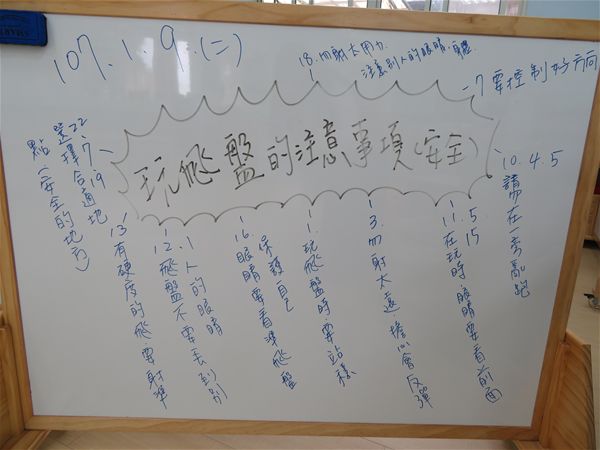 107.1.9.(二)
18.勿射太用力.
注意別人的眼睛.身體
玩飛盤的注意事項(安全)
7要控制好方向
10.4 5
請勿在一旁亂跑
11.5
15
在玩時.眼睛要看前面
3.勿射太遠.擔心會反彈
1.玩飛盤時.要站穩
保護自己
16.眼睛要看準飛盤
1人的眼睛
12.飛盤不要丟到別
13有硬度的飛盤要射準
22、7、19
選擇合適地
點(安全的地方)